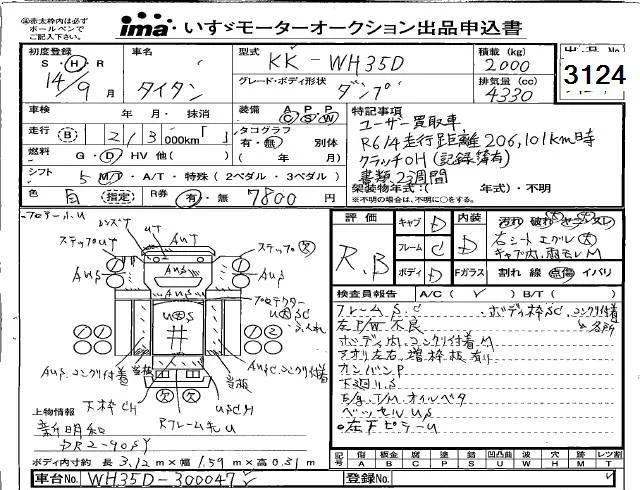 ㊟赤太枠内は必ず
ボールペンで
ご記入下さい。
ima いすゞモーターオークション出品申込書
初度登録 車名 型式 積載 (kg)
S・H・R タイタン KK-WH35D 2000
14年9月 グレード・ボディ形状 ダンプ 排気量 (cc) 4330
3124
車検 年・月・抹消 装備 A/C P/S P/W
走行 B 213 000km「 」 タコグラフ 有・無 別体
燃料 G・D HV 他( ) ( 年 月)
シフト 5 MT・A/T・特殊 (2ペダル・3ペダル)
色 白 (指定) R券 有・無 7800円
特記事項
ユーザー買取車
R6/4走行距離206,101km時
クラッチOH(記録簿有)
書類2週間
架装物年式:( 年式)・不明
※不明の場合は、不明に○をする。
評価 R.B
キャブ D
フレーム C
ボディ D
内装 D
Fガラス 割れ 線 点傷 イバリ
右シートエグレ大
検査員報告 A/C( ) B/T( )
フレームS.C
ボディ枠SC、コンクリ付着
左P/W不良
ボディ内、コンクリ付着M
アオリ左右、増枠板有り
カンバンP
下廻りS
E/g.T/M.オイルベタ
ベッセルUS
左下ピラーU
ステップUT
AUT
ステップ
AUS
AUS
プロテクター
当板
当板
AUS.コンクリ付着
AUSC.コンクリ付着
下枠CH
USCH
上物情報
新明和
DR2-90SY
ボディ内寸約 長3.12m×幅1.59m×高0.31m
車台No. WH35D-300047
登録No.
記号 傷 A 板金 B 腐 C 塗 P 錆 S 凹凸曲 U 波 W 穴 H 跡 M レツ割 T